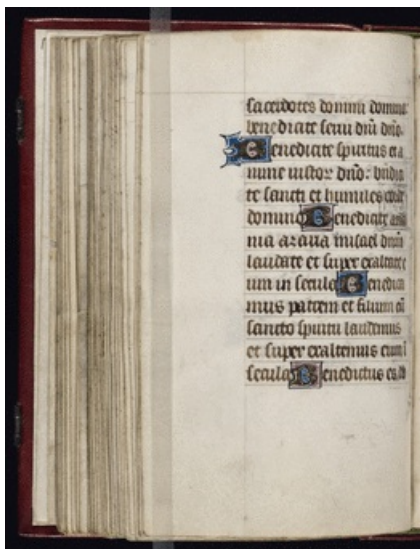 sacerdotes domini domino
benedicite serui dni dno.
Benedicite spiritus et a
nime iustor dno: bndic
te sancti et humiles corde
domino Benedicite ana
nia azaria misael domino
laudate et super exaltate e
um in secula Benedica
mus patrem et filium cu
sancto spiritu laudemus
et super exaltemus eum i
secula Benedictus es do